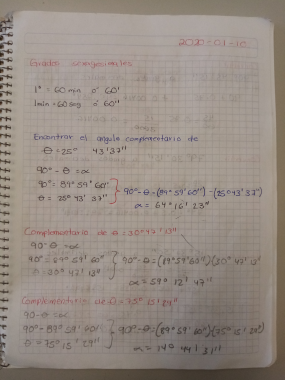 2020-01-10
Grados sexagesimales
1° = 60 min ó 60'
1min = 60 seg ó 60"
Encontrar el angulo complementario de
θ = 25° 43' 37"
90° - θ = α
90° = 89° 59' 60"
θ = 25° 43' 37" } 90° - θ = (89° 59' 60") - (25° 43' 37")
α = 64° 16' 23"
Complementario de θ = 30° 47' 13"
90 - θ = α
90° = 89° 59' 60" } 90° - θ = (89° 59' 60") (30° 47' 13"
θ = 30° 47' 13"
α = 59° 12' 47"
Complementario de θ = 75° 15' 29"
90 - θ = α
90° = 89° 59' 60" } 90° - θ = (89° 59' 60") (75° 15' 29")
θ = 75° 15' 29"
α = 14° 44' 31"